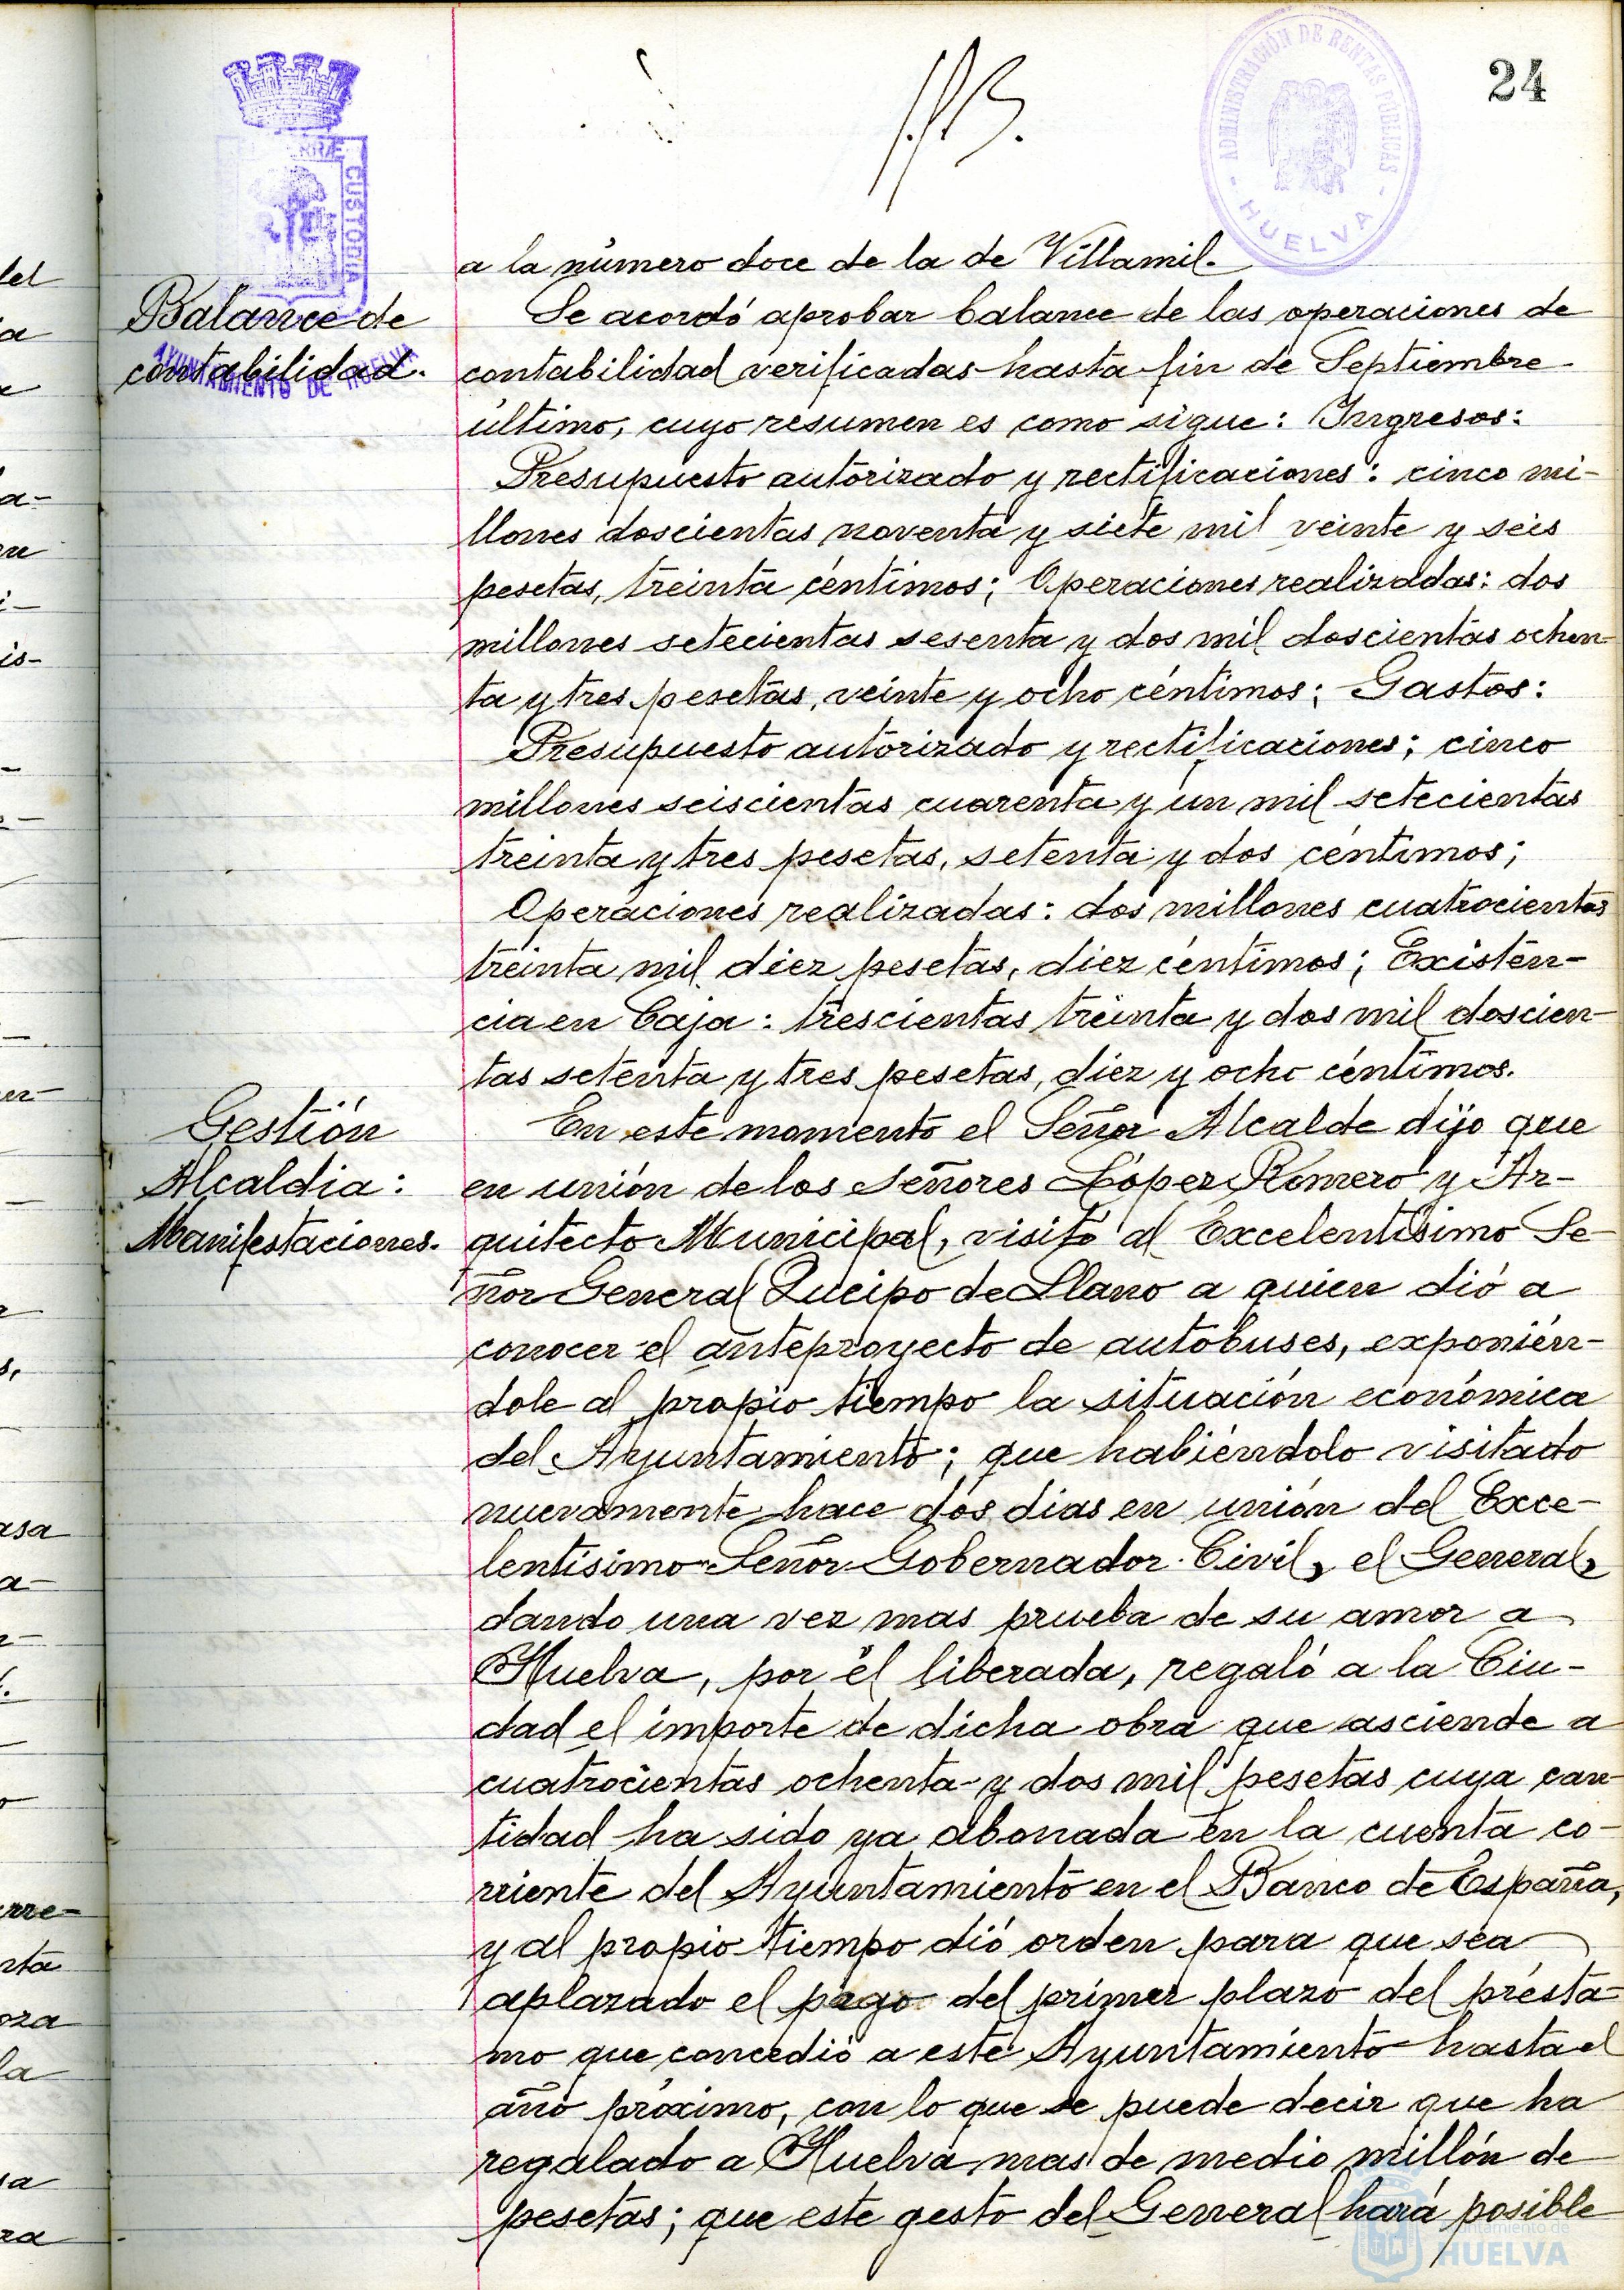 24
ADMINISTRACIÓN DE RENTAS PÚBLICAS
- HUELVA -
CUSTODIA
AYUNTAMIENTO DE HUELVA
a la número doce de la de Villamil.
Balance de
contabilidad.
Se acordó aprobar balance de las operaciones de
contabilidad verificadas hasta fin de Septiembre
último, cuyo resumen es como sigue: Ingresos:
Presupuesto autorizado y rectificaciones: cinco mi-
llones doscientas noventa y siete mil veinte y seis
pesetas, treinta céntimos; Operaciones realizadas: dos
millones setecientas sesenta y dos mil doscientas ochen-
ta y tres pesetas, veinte y ocho céntimos; Gastos:
Presupuesto autorizado y rectificaciones; cinco
millones seiscientas cuarenta y un mil setecientas
treinta y tres pesetas, setenta y dos céntimos;
Operaciones realizadas: dos millones cuatrocientas
treinta mil diez pesetas, diez céntimos; Existen-
cia en Caja: trescientas treinta y dos mil doscien-
tas setenta y tres pesetas, diez y ocho céntimos.
Gestión
Alcaldia:
Manifestaciones.
En este momento el Señor Alcalde dijo que
en unión de los señores López Romero y Ar-
quitecto Municipal, visitó al Excelentísimo Se-
ñor General Queipo de Llano a quien dió a
conocer el anteproyecto de autobuses, exponién-
dole al propio tiempo la situación económica
del Ayuntamiento; que habiéndolo visitado
nuevamente hace dos dias en unión del Exce-
lentísimo Señor Gobernador Civil, el General,
dando una vez mas prueba de su amor a
Huelva, por él liberada, regaló a la Ciu-
dad el importe de dicha obra que asciende a
cuatrocientas ochenta y dos mil pesetas cuya can
tidad ha sido ya abonada en la cuenta co-
rriente del Ayuntamiento en el Banco de España,
y al propio tiempo dió orden para que sea
aplazado el pago del primer plazo del présta-
mo que concedió a este Ayuntamiento hasta el
año próximo, con lo que se puede decir que ha
regalado a Huelva mas de medio millón de
pesetas; que este gesto del General hará posible
Ayuntamiento de
HUELVA